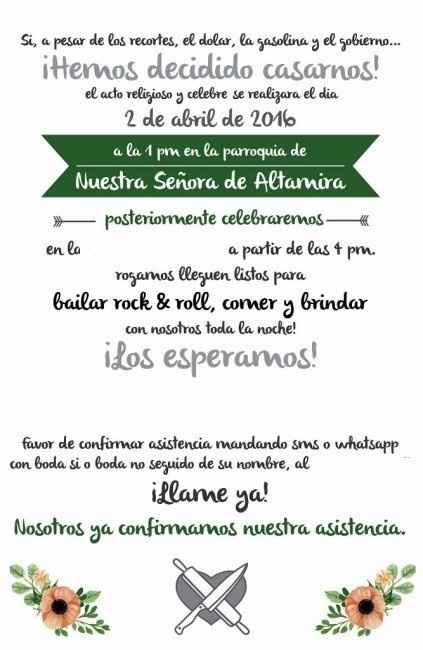 Si, a pesar de los recortes, el dolar, la gasolina y el gobierno...
¡Hemos decidido casarnos!
el acto religioso y celebre se realizara el dia
2 de abril de 2016
a la 1 pm en la parroquia de
Nuestra Señora de Altamira
posteriormente celebraremos
en la a partir de las 4 pm.
rogamos lleguen listos para
bailar rock & roll, comer y brindar
con nosotros toda la noche!
¡Los esperamos!
favor de confirmar asistencia mandando sms o whatsapp
con boda si o boda no seguido de su nombre, al
¡Llame ya!
Nosotros ya confirmamos nuestra asistencia.